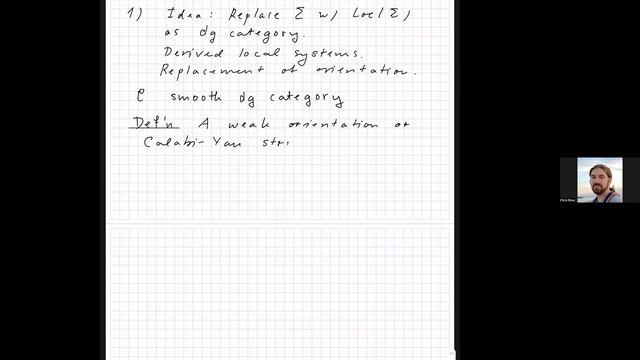 1) Idea: Replace Σ w/ Loc(Σ)
as dg category.
Derived local systems.
Replacement of orientation.
C smooth dg category
Def'n A weak orientation or
Calabi-Yau str